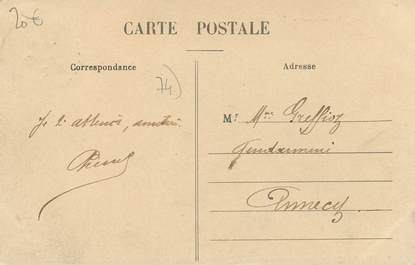 20€
CARTE POSTALE
Correspondance
Adresse
74)
Je t'attends, amitiés.
M: Mme Greffioz
Gendarmerie
Annecy